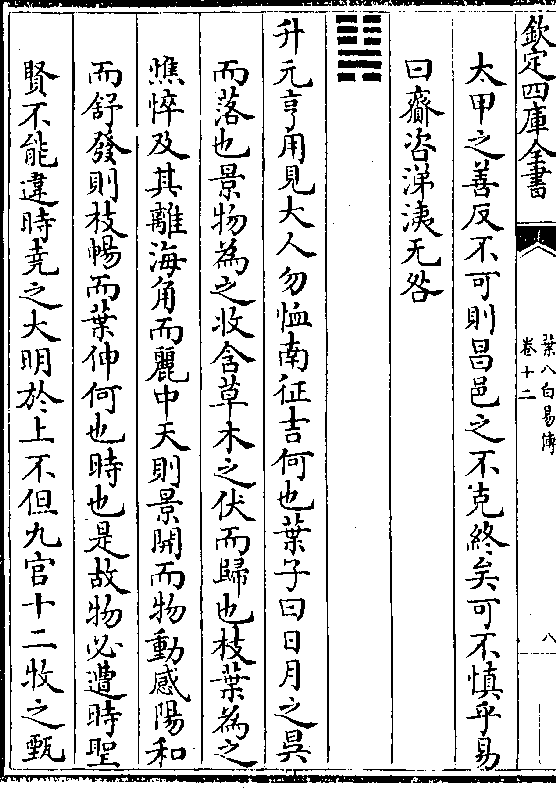 欽定四庫全書
葉八白易傳
卷十二
八
太甲之善反不可則昌邑之不克終矣可不慎乎易
曰齎咨涕洟无咎
升元亨用見大人勿恤南征吉何也葉子曰日月之昃
而落也景物為之收含草木之伏而歸也枝葉為之
憔悴及其離海角而麗中天則景開而物動感陽和
而舒發則枝暢而葉伸何也時也是故物必遭時聖
賢不能違時堯之大明於上不但九官十二牧之甄